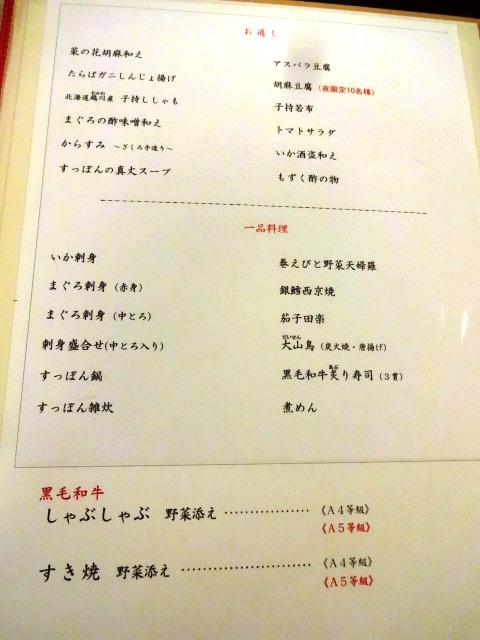 お通し
菜の花胡麻和え
たらばガニしんじょ揚げ
北海道鵡川産 子持ししゃも
まぐろの酢味噌和え
からすみ ～ざくろ手造り～
すっぽんの真丈スープ
アスパラ豆腐
胡麻豆腐（夜限定10名様）
子持若布
トマトサラダ
いか酒盗和え
もずく酢の物
一品料理
いか刺身
まぐろ刺身（赤身）
まぐろ刺身（中とろ）
刺身盛合せ(中とろ入り)
すっぽん鍋
すっぽん雑炊
巻えびと野菜天婦羅
銀鱈西京焼
茄子田楽
だいせん
大山鳥（炭火焼・唐揚げ）
あぶ
黒毛和牛炙り寿司（３貫）
煮めん
黒毛和牛
しゃぶしゃぶ 野菜添え ················· 《Ａ４等級》
《Ａ５等級》
すき焼 野菜添え ························· 《Ａ４等級》
《Ａ５等級》